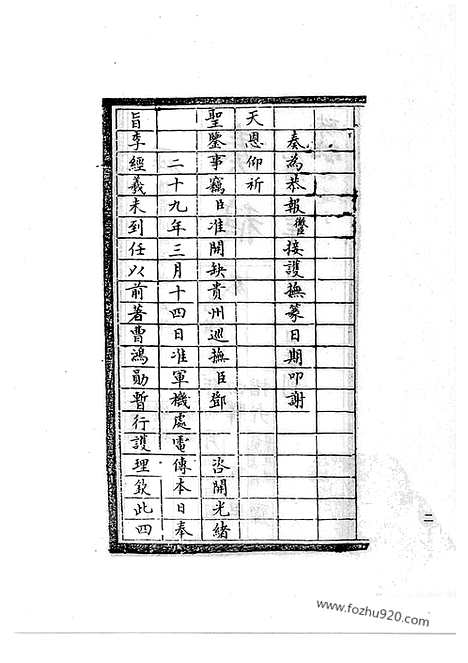 奏為恭報微臣接護撫篆日期叩謝
天恩仰祈
聖鑒事竊臣准開缺貴州巡撫臣鄧 咨開光緒
二十九年三月十四日准軍機處電傳本日奉
旨李經羲未到任以前著曹鴻勛暫行護理欽此四
二
www.fozhu920.com